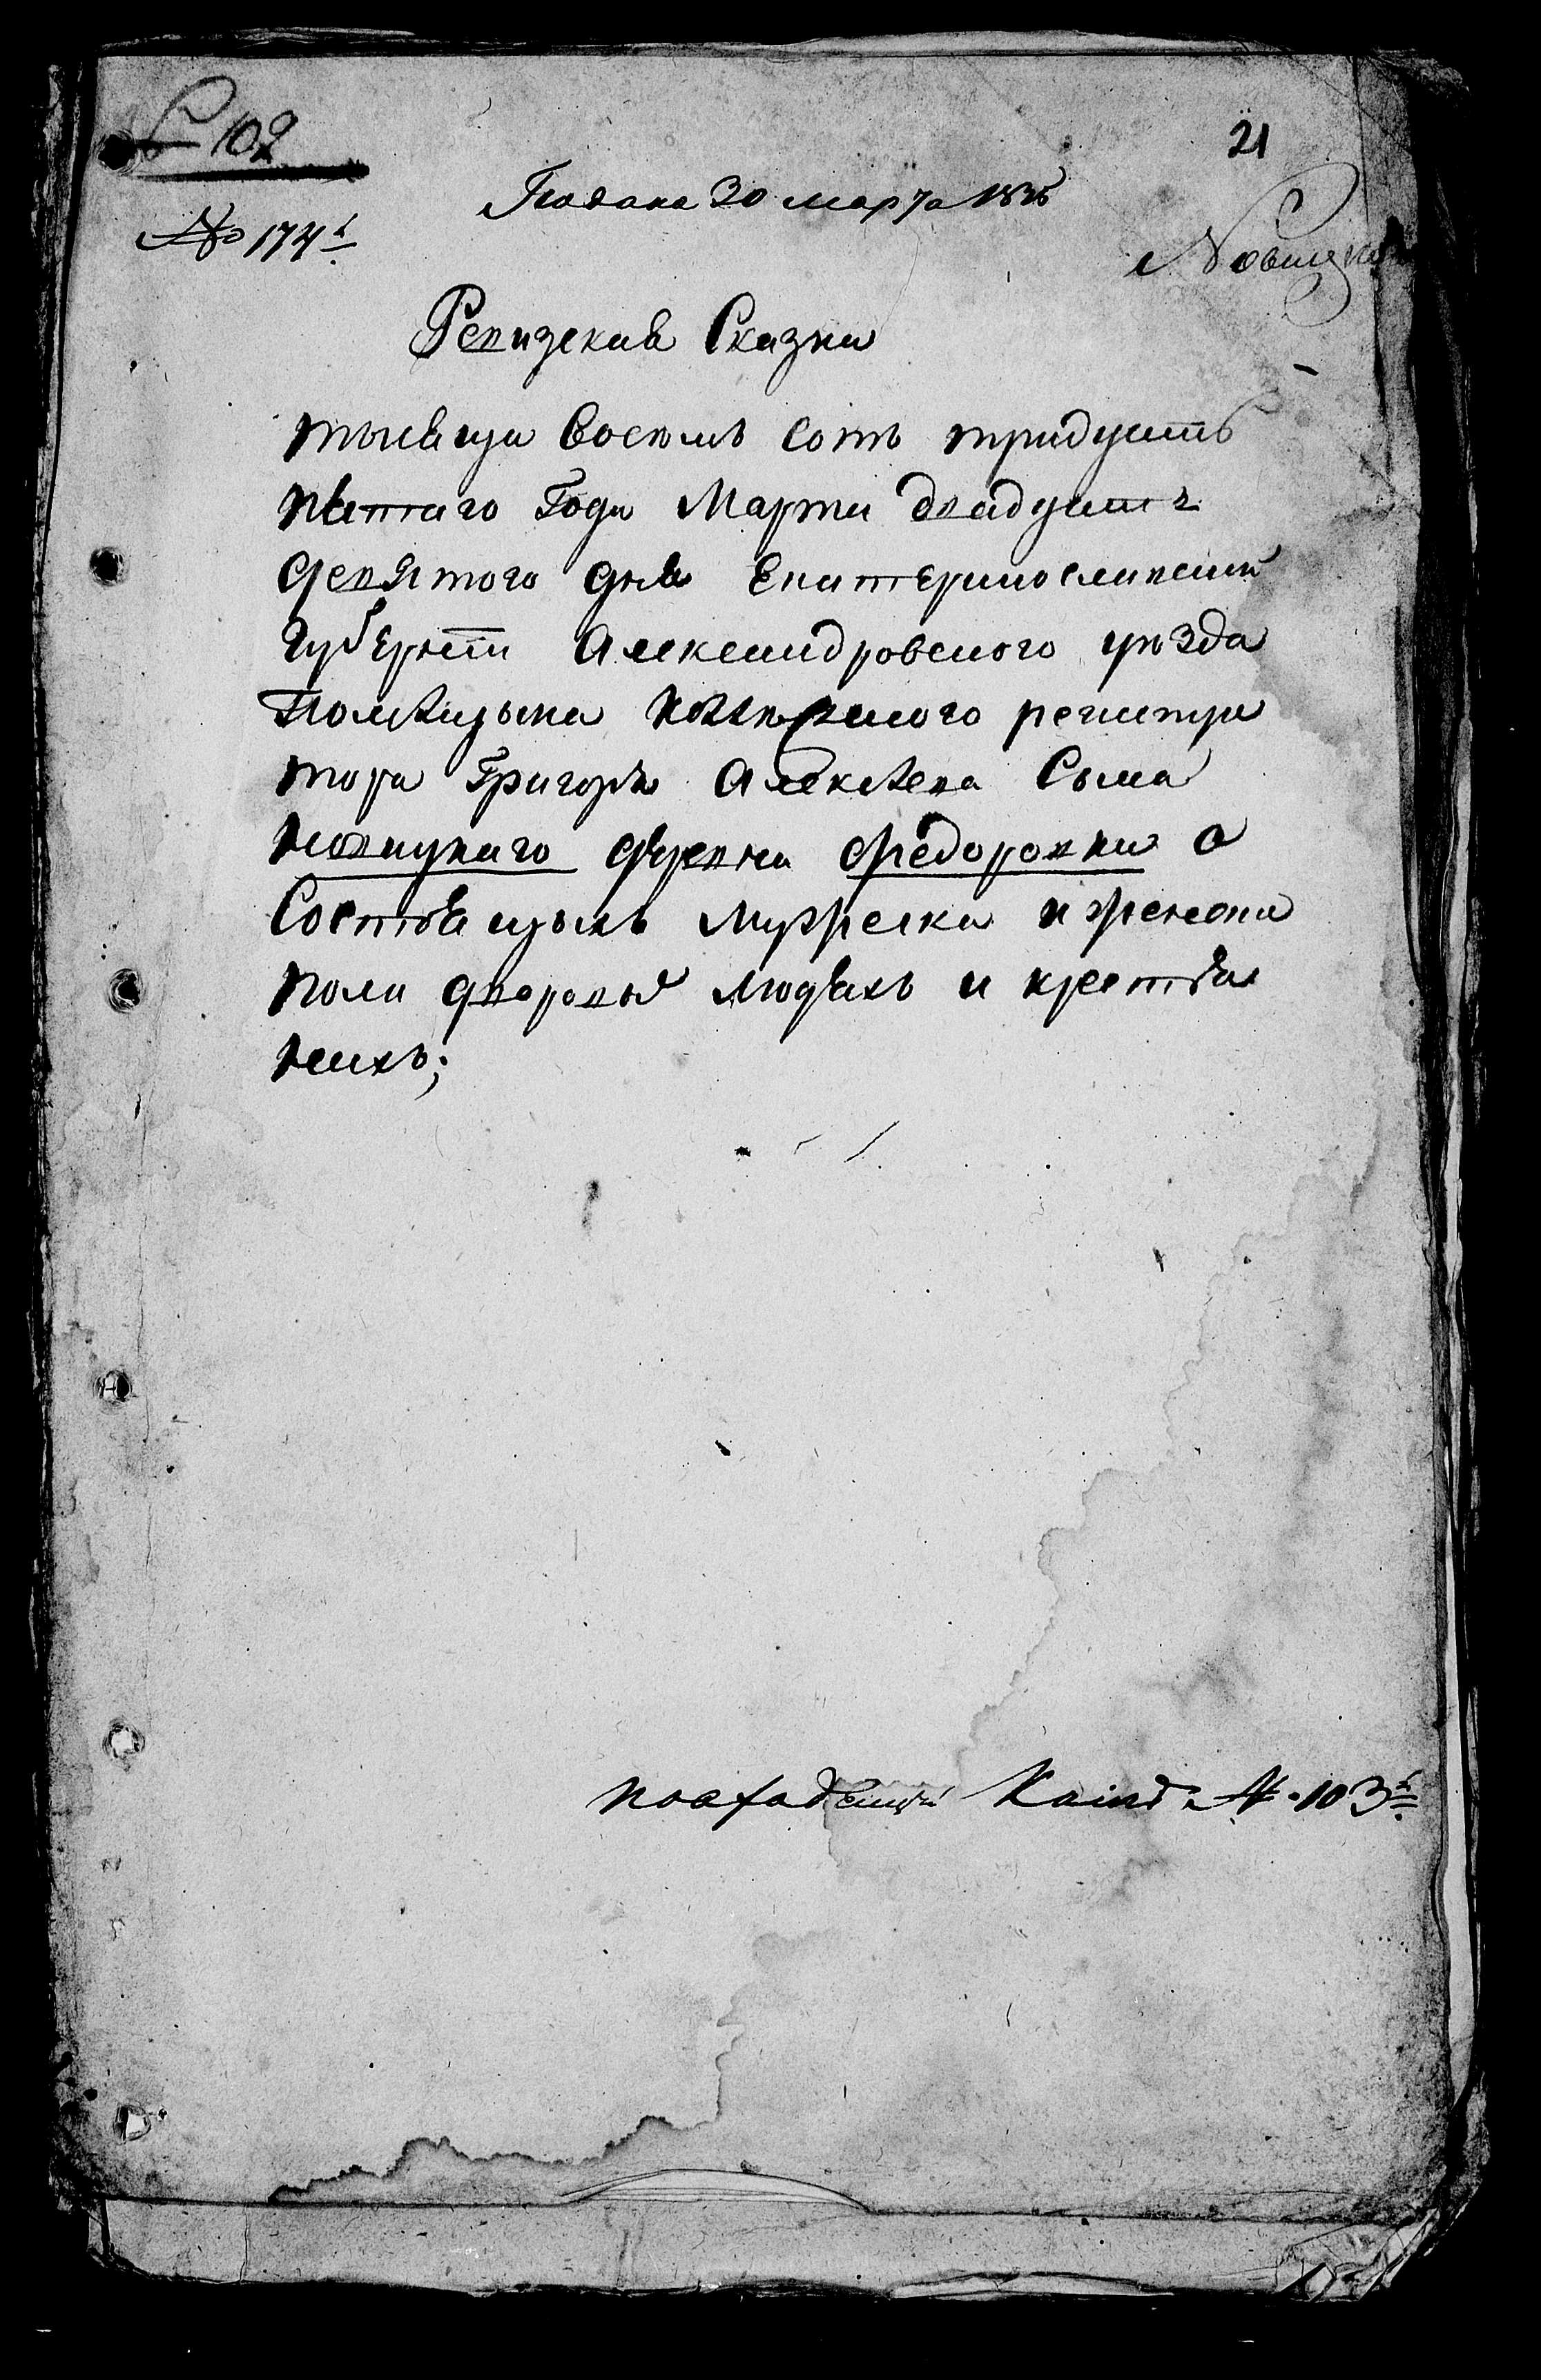 102
21
Подана 30 марта 1835
№ 174й
Новицкаго
Ревизская Сказка
тысяща восемь сотъ тридцать
пятаго Года Марта двадцать
девятого дня Екатеринославской
губернїи Александровского уѣзда
Помѣщика колежского регистра
тора Григорія Алексѣева Сына
Новицкаго деревни Федоровки о
Состоящихъ мужеска и женска
пола дворовыѣ людѣхъ и крестья
нахъ;
№ 103й